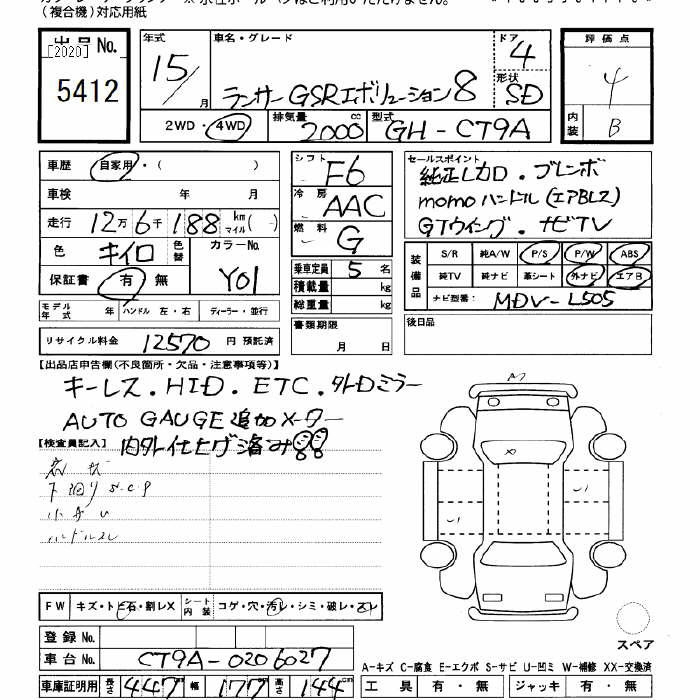 (複合機)対応用紙
出品No.
[2020]
5412
年式
15/月
車名・グレード
ランサーGSRエボリューション8
ドア
4
形状
SD
評価点
4
内装
B
2WD・4WD
排気量
2000cc
型式
GH-CT9A
車歴
自家用・( )
車検 年 月
走行 12万6千188 km マイル( )
色 キイロ
色替
カラーNo.
Y01
保証書 有・無
シフト
F6
冷房
AAC
燃料
G
乗車定員 5名
積載量 kg
総重量 kg
書類期限
月 日
セールスポイント
純正レカロ・ブレンボ
momoハンドル(エアBレス)
GTウイング・ナビTV
装備品
S/R 純A/W P/S P/W ABS
純TV 純ナビ 革シート 外ナビ エアB
ナビ型番: MDV-L505
モデル年式 年
ハンドル 左・右
ディーラー・並行
後日品
リサイクル料金 12570円 預託済
【出品店申告欄(不良箇所・欠品・注意事項等)】
キーレス.HID.ETC.外Dミラー
AUTO GAUGE追加メーター
内外仕上げ済み
【検査員記入】
下廻りS.C.P
ハンドルスレ
FW
キズ・トビ石・割レX
シート内装
コゲ・穴・汚レ・シミ・破レ・スレ
登録No.
車台No. CT9A-0206027
車庫証明用 長さ 447cm 幅 177cm 高さ 144cm
スペア
A-キズ C-腐食 E-エクボ S-サビ U-凹ミ W-補修 XX-交換済
工具 有・無 ジャッキ 有・無